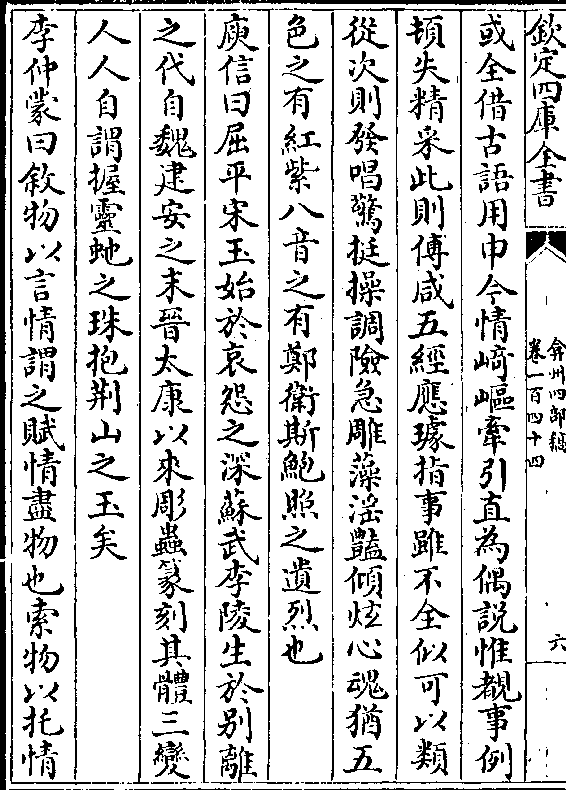 欽定四庫全書
弇州四部稿
卷一百四十四
六
或全借古語用申今情崎嶇牽引直為偶說惟覩事例
頓失精采此則傅咸五經應璩指事雖不全似可以類
從次則發唱驚挺操調險急雕藻淫豔傾炫心魂猶五
色之有紅紫八音之有鄭衛斯鮑照之遺烈也
庾信曰屈平宋玉始於哀怨之深蘇武李陵生於别離
之代自魏建安之末晉太康以來彫蟲篆刻其體三變
人人自謂握靈虵之珠抱荆山之玉矣
李仲蒙曰敘物以言情謂之賦情盡物也索物以托情